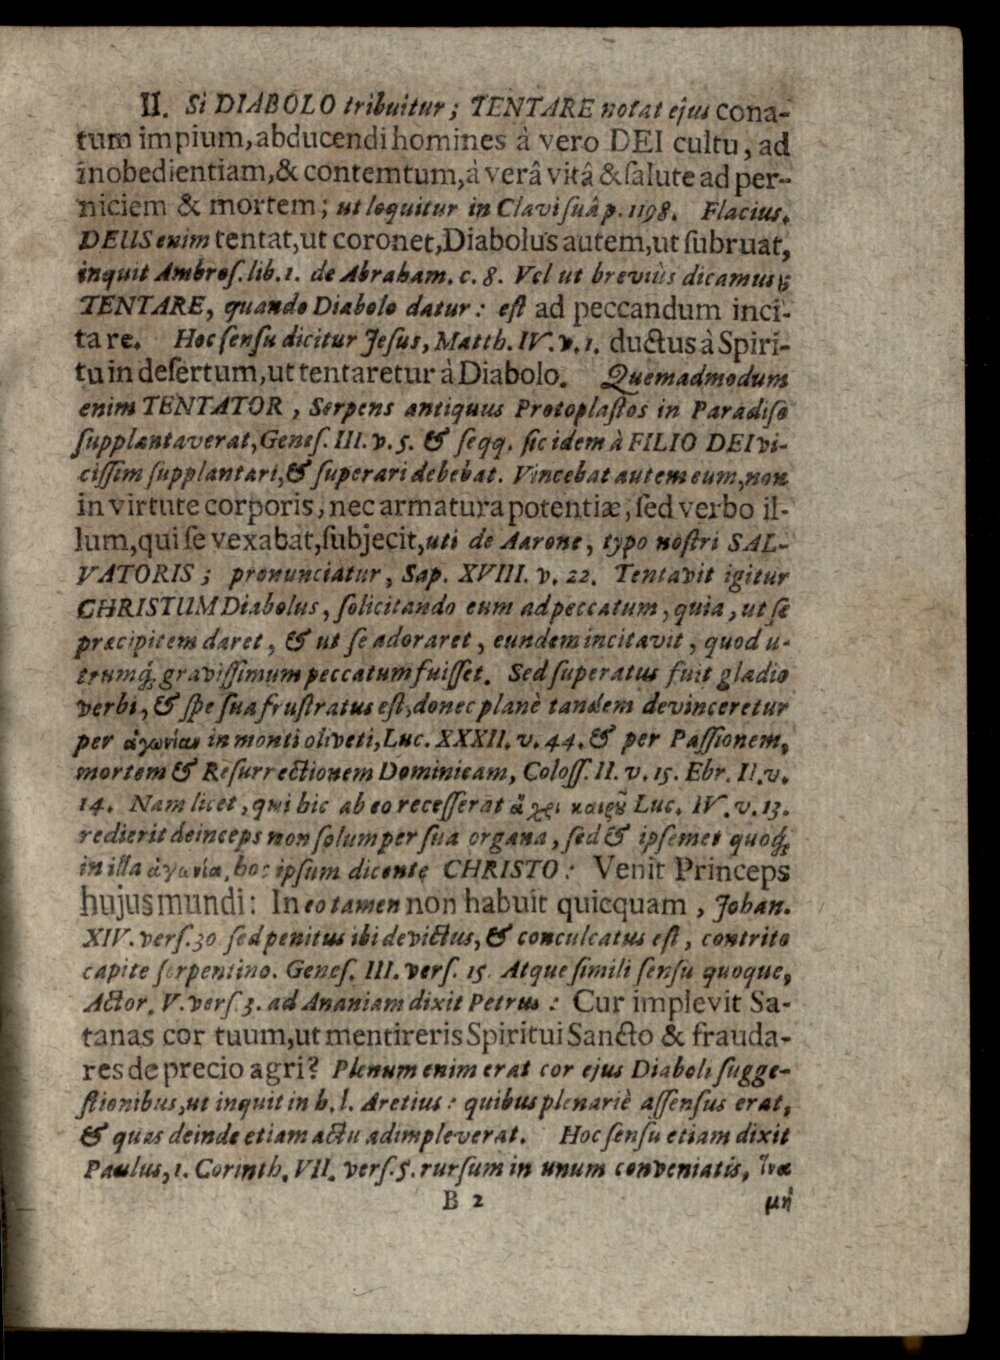 II. Si DIABOLO tribuitur; TENTARE notat ejus cona-
tum impium, abducendi homines à vero DEI cultu, ad
inobedientiam, & contemtum, à verâ vitâ & ſalute ad per-
niciem & mortem; ut loquitur in Clavi ſuâ p. 1198. Flacius.
DEUS enim tentat, ut coronet, Diabolus autem, ut ſubruat,
inquit Ambroſ. lib. 1. de Abraham. c. 8. Vel ut breviùs dicamus;
TENTARE, quando Diabolo datur: eſt ad peccandum inci-
tare. Hoc ſenſu dicitur Jeſus, Matth. IV. v. 1. ductus à Spiri-
tu in deſertum, ut tentaretur à Diabolo. Quemadmodum
enim TENTATOR, Serpens antiquus Protoplaſtos in Paradiſo
ſupplantaverat, Geneſ. III. v. 5. & ſeqq. ſic idem à FILIO DEI vi-
ciſſim ſupplantari, & ſuperari debebat. Vincebat autem eum, non
in virtute corporis, nec armatura potentiæ, ſed verbo il-
lum, qui ſe vexabat, ſubjecit, uti de Aarone, typo noſtri SAL-
VATORIS; pronunciatur, Sap. XVIII. v. 22. Tentavit igitur
CHRISTUM Diabolus, ſolicitando eum ad peccatum, quia, ut ſe
præcipitem daret, & ut ſe adoraret, eundem incitavit, quod u-
trumq; graviſſimum peccatum fuiſſet. Sed ſuperatus fuit gladio
verbi, & ſpe ſua fruſtratus eſt, donec planè tandem devinceretur
per ἀγωνίαν in monti oliveti, Luc. XXXII. v. 44. & per Paſſionem,
mortem & Reſurrectionem Dominicam, Coloſſ. II. v. 15. Ebr. II. v.
14. Nam licet, qui hic ab eo receſſerat ἄχρι καιροῦ Luc. IV. v. 13.
redierit deinceps non ſolum per ſua organa, ſed & ipſemet quoq;
in illa ἀγωνία, hoc ipſum dicente CHRISTO: Venit Princeps
hujus mundi: In eo tamen non habuit quicquam, Johan.
XIV. verſ. 30 ſed penitus ibi devictus, & conculcatus eſt, contrito
capite ſerpentino. Geneſ. III. verſ. 15. Atque ſimili ſenſu quoque,
Actor. V. verſ. 3. ad Ananiam dixit Petrus: Cur implevit Sa-
tanas cor tuum, ut mentireris Spiritui Sancto & frauda-
res de precio agri? Plenum enim erat cor ejus Diaboli ſugge-
ſtionibus, ut inquit in h. l. Aretius: quibus plenariè aſſenſus erat,
& quas deinde etiam actu adimpleverat. Hoc ſenſu etiam dixit
Paulus, 1. Corinth. VII. verſ. 5. rurſum in unum conveniatis, ἵνα
B 2 μὴ